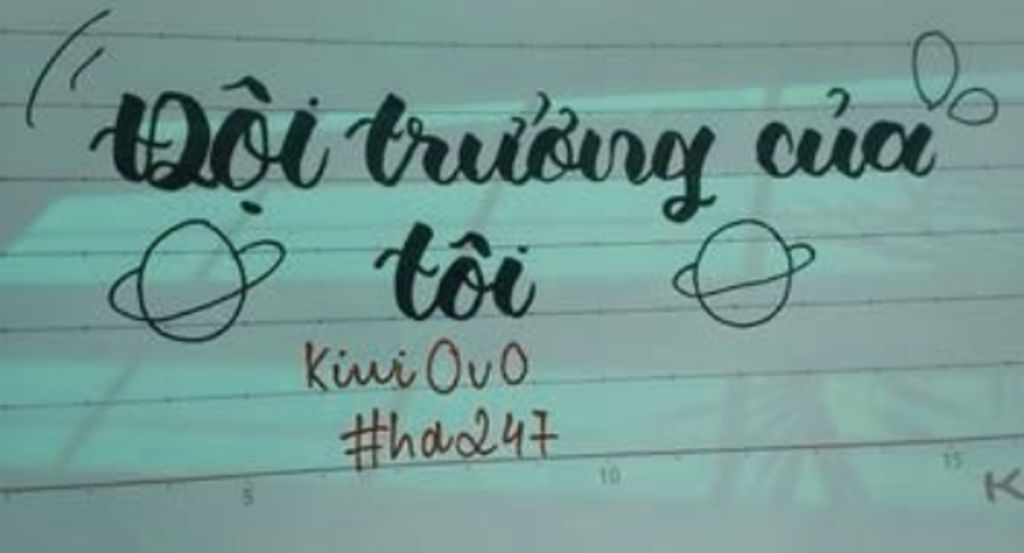 Đội trưởng của
tôi
Kiwi OvO
#ha247
5 10 15
K